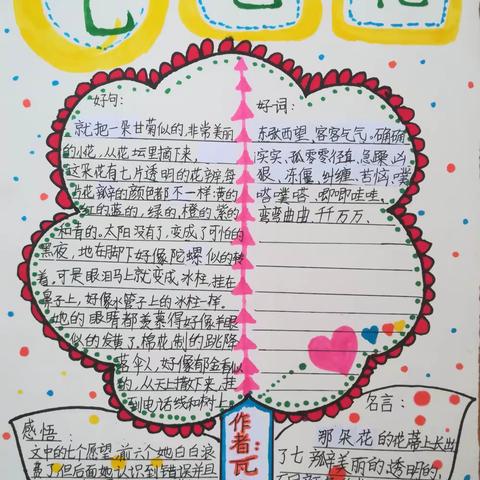 七色花
好句:
就把一朵甘菊似的,非常美丽
的小花,从花坛里摘下来,
这朵花有七片透明的花瓣,每
片花瓣的颜色都不一样:黄的
红的蓝的,绿的,橙的,紫的
和青的.太阳没有了,变成了可怕的
黑夜,地在脚下好像陀螺似的转
着,可是眼泪马上就变成冰柱,挂在
鼻子上,好像水管子上的冰柱一样.
她的眼睛都羡慕得好像羊眼
似的发黄了,棉花制的跳降
落伞人,好像郁金香似
的,从天上撒下来,挂
到电话线和树上
好词:
东张西望,客客气气,确确
实实,孤零零,径直,急躁,凶
狠,冻僵,纠缠,苦恼,噗
嗒噗嗒,唧唧哇哇,
弯弯曲曲,千千万万、
作者:瓦
感悟:
文中的七个愿望,前六个她白白浪
费了但后面她认识到错误并且
名言:
那朵花的花蒂上长出
了七瓣美丽的透明的,